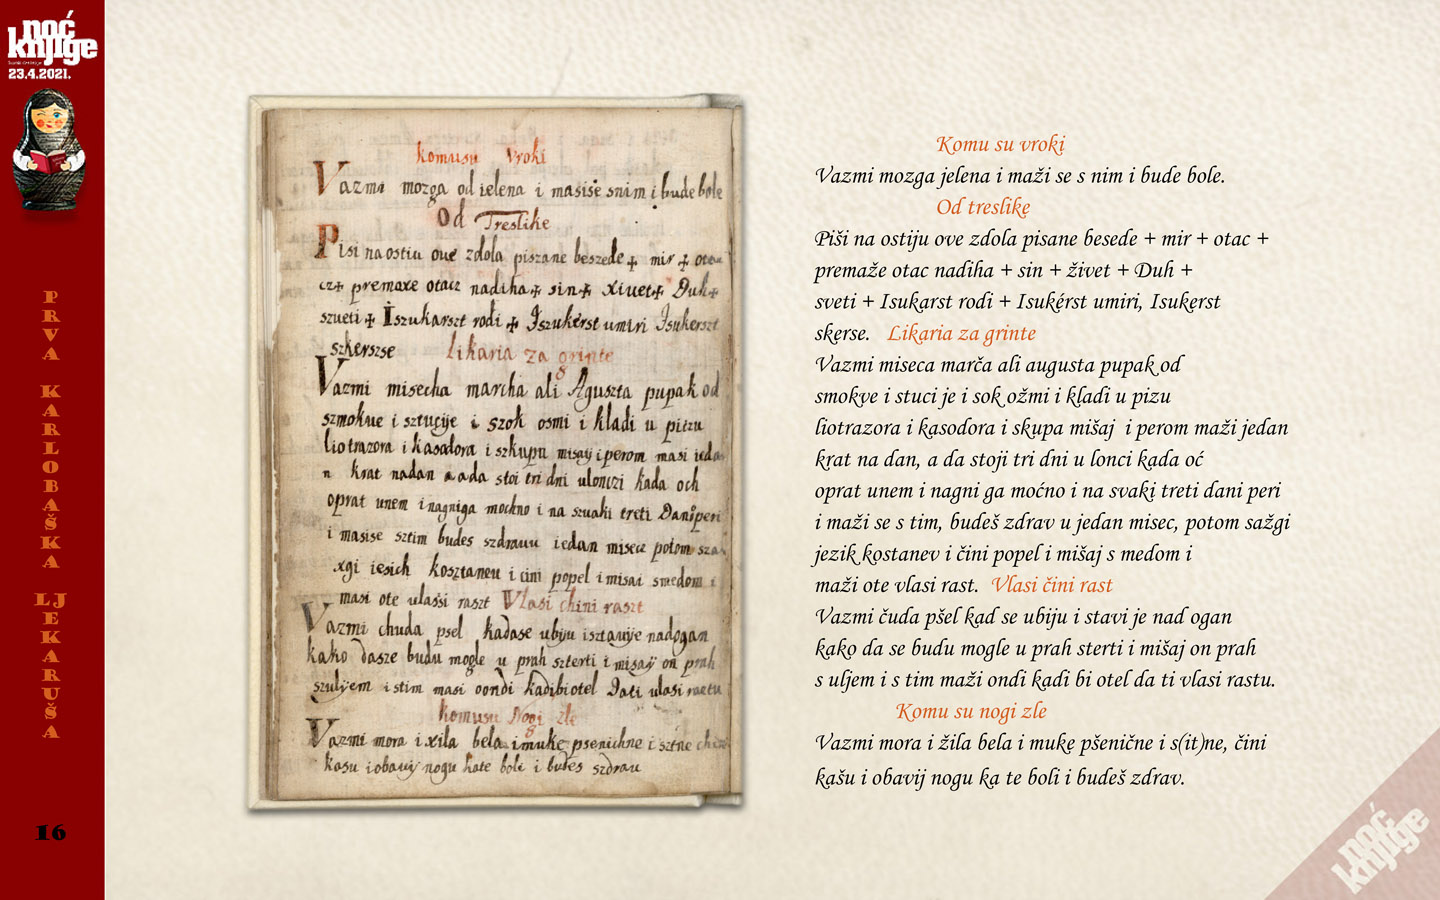 noć
knjige
23.4.2021.
PRVA KARLOBAŠKA LJEKARUŠA
16
komusu vroki
Vazmi mozga od ielena i masise snim i bude bole
Od Treslike
Pisi na ostiu ove zdola piszane beszede + mir + otac
cz+ premaxe otacz nadiha+ sin+ xivet+ Duh+
szveti + Iszukarszt rodi + Iszukérst umiri Isukerszt
szkerszse likaria za grinte
Vazmi misecha marcha ali Aguszta pupak od
szmokve i sztucije i szok osmi i kladi u pizu
liotrazora i kasodora i szkupa misaÿ i perom masi ieda
n krat nadan a ada stoi tri dni ulonczi kada och
oprat unem i nagniga mochno i na szvaki treti Dani peri
i masise sztim budes szdravu iedan misecz potom sza
xgi iesich kosztaneu i cini popel i misai smedom i
masi ote vlassi raszt Vlasi chini raszt
Vazmi chuda psel kadase ubiju isztavije nadogan
kako dasze budu mogle u prah szterti i misaÿ on prah
szuljem i stim masi oondi kadibiotel Dati vlasi rastu
komusu Nogi zle
Vazmi mora i xila bela i muke psenichne i sztne chini
kasu i obavij nogu kate boli i budes szdrau
Komu su vroki
Vazmi mozga jelena i maži se s nim i bude bole.
Od treslike
Piši na ostiju ove zdola pisane besede + mir + otac +
premaže otac nadiha + sin + živet + Duh +
sveti + Isukarst rodi + Isukérst umiri, Isukerst
skerse. Likaria za grinte
Vazmi miseca marča ali augusta pupak od
smokve i stuci je i sok ožmi i kladi u pizu
liotrazora i kasodora i skupa mišaj i perom maži jedan
krat na dan, a da stoji tri dni u lonci kada oć
oprat unem i nagni ga moćno i na svaki treti dani peri
i maži se s tim, budeš zdrav u jedan misec, potom sažgi
jezik kostanev i čini popel i mišaj s medom i
maži ote vlasi rast. Vlasi čini rast
Vazmi čuda pšel kad se ubiju i stavi je nad ogan
kako da se budu mogle u prah sterti i mišaj on prah
s uljem i s tim maži ondi kadi bi otel da ti vlasi rastu.
Komu su nogi zle
Vazmi mora i žila bela i muke pšenične i s(it)ne, čini
kašu i obavij nogu ka te boli i budeš zdrav.
noć
knjige